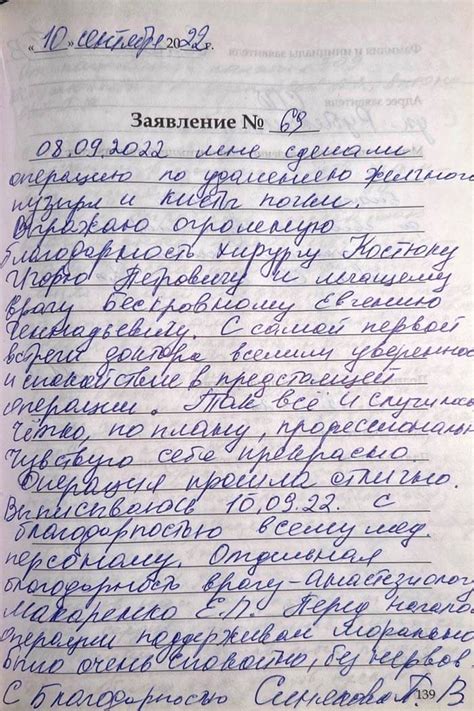 « 10 » сентября 2022 г.
Заявление № 69
08.09.2022 мне сделали
операцию по удалению желчного
пузыря и кисты почки.
Выражаю огромную
благодарность хирургу Костюку
Игорю Петровичу и лечащему
врачу Бескровному Евгению
Геннадьевичу. С самой первой
встречи доктора вселили уверенност
и спокойствие в предстоящей
операции. Так всё и случилось
Чётко, по плану, профессионально
Чувствую себя прекрасно.
Операция прошла отлично.
Выписываюсь 10.09.22. С
благодарностью всему мед.
персоналу. Отдельная
благодарность врачу-анастезиологу
Макаренко Е.П. Перед началом
операции поддерживал морально
было очень спокойно, без нервов
С благодарностью
139